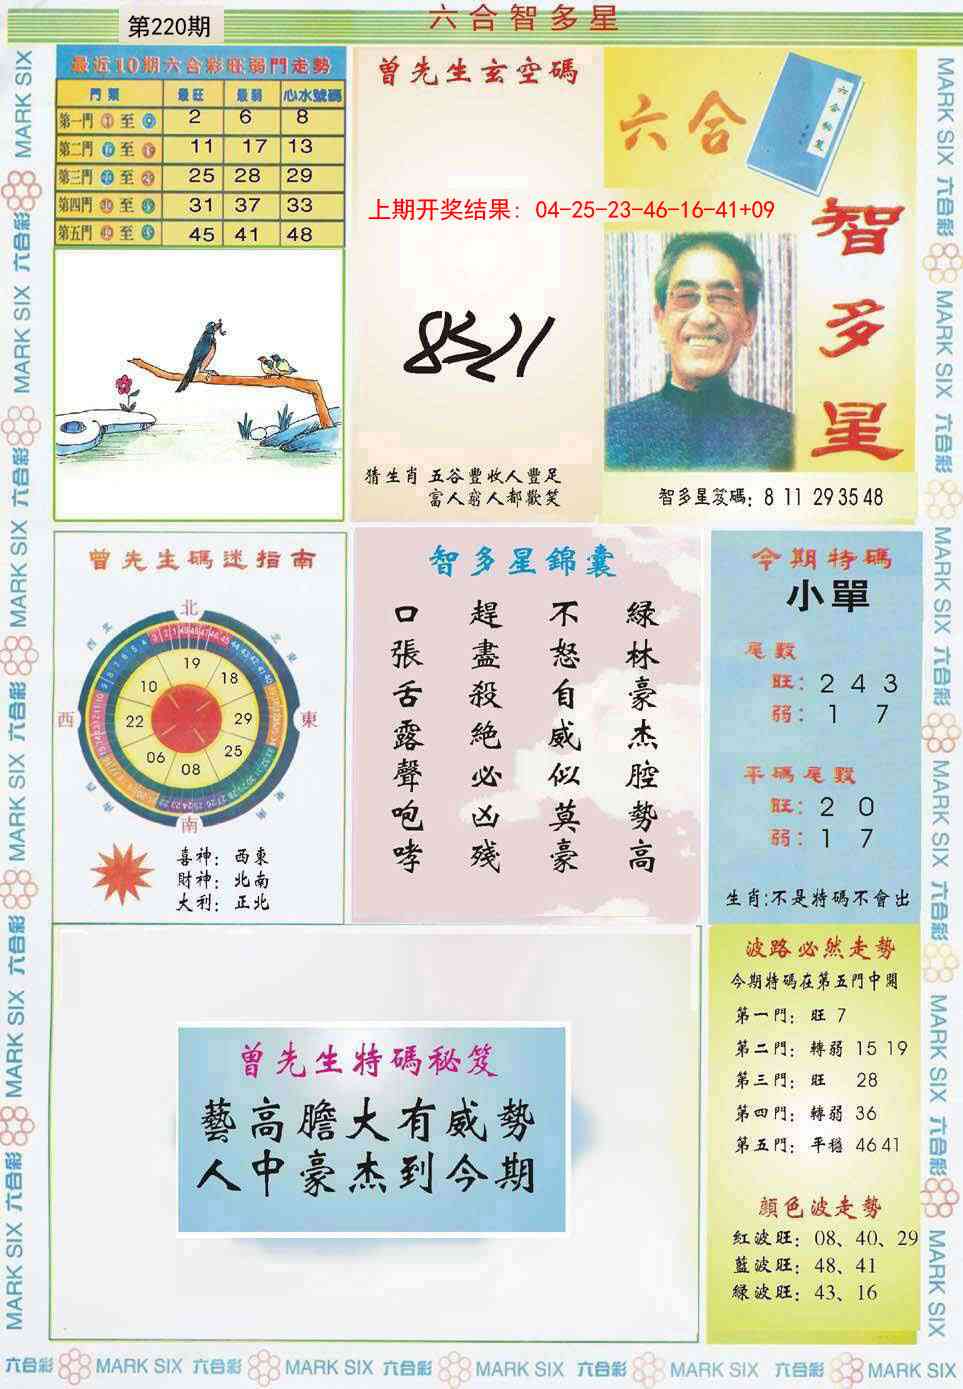 第220期
六合智多星
最近10期六合彩旺弱門走勢
門類 最旺 最弱 心水號碼
第一門 至 2 6 8
第二門 至 11 17 13
第三門 至 25 28 29
第四門 至 31 37 33
第五門 至 45 41 48
曾先生玄空碼
上期开奖结果：04-25-23-46-16-41+09
猜生肖 五谷豐收人豐足
富人窮人都歡笑
六合
智多星
智多星笈碼：8 11 29 35 48
曾先生碼迷指南
北
西
東
南
19
18
29
25
08
06
22
10
喜神：西東
財神：北南
大利：正北
智多星錦囊
綠林豪杰腔勢高
不怒自威似莫豪
趕盡殺絕必凶殘
口張舌露聲咆哮
今期特碼
小單
尾數
旺：2 4 3
弱：1 7
平碼尾數
旺：2 0
弱：1 7
生肖:不是特碼不會出
曾先生特碼秘笈
藝高膽大有威勢
人中豪杰到今期
波路必然走勢
今期特碼在第五門中開
第一門：旺 7
第二門：轉弱 15 19
第三門：旺 28
第四門：轉弱 36
第五門：平穩 46 41
顏色波走勢
紅波旺：08、40、29
藍波旺：48、41
綠波旺：43、16
六合彩 MARK SIX 六合彩 MARK SIX 六合彩 MARK SIX 六合彩 MARK SIX